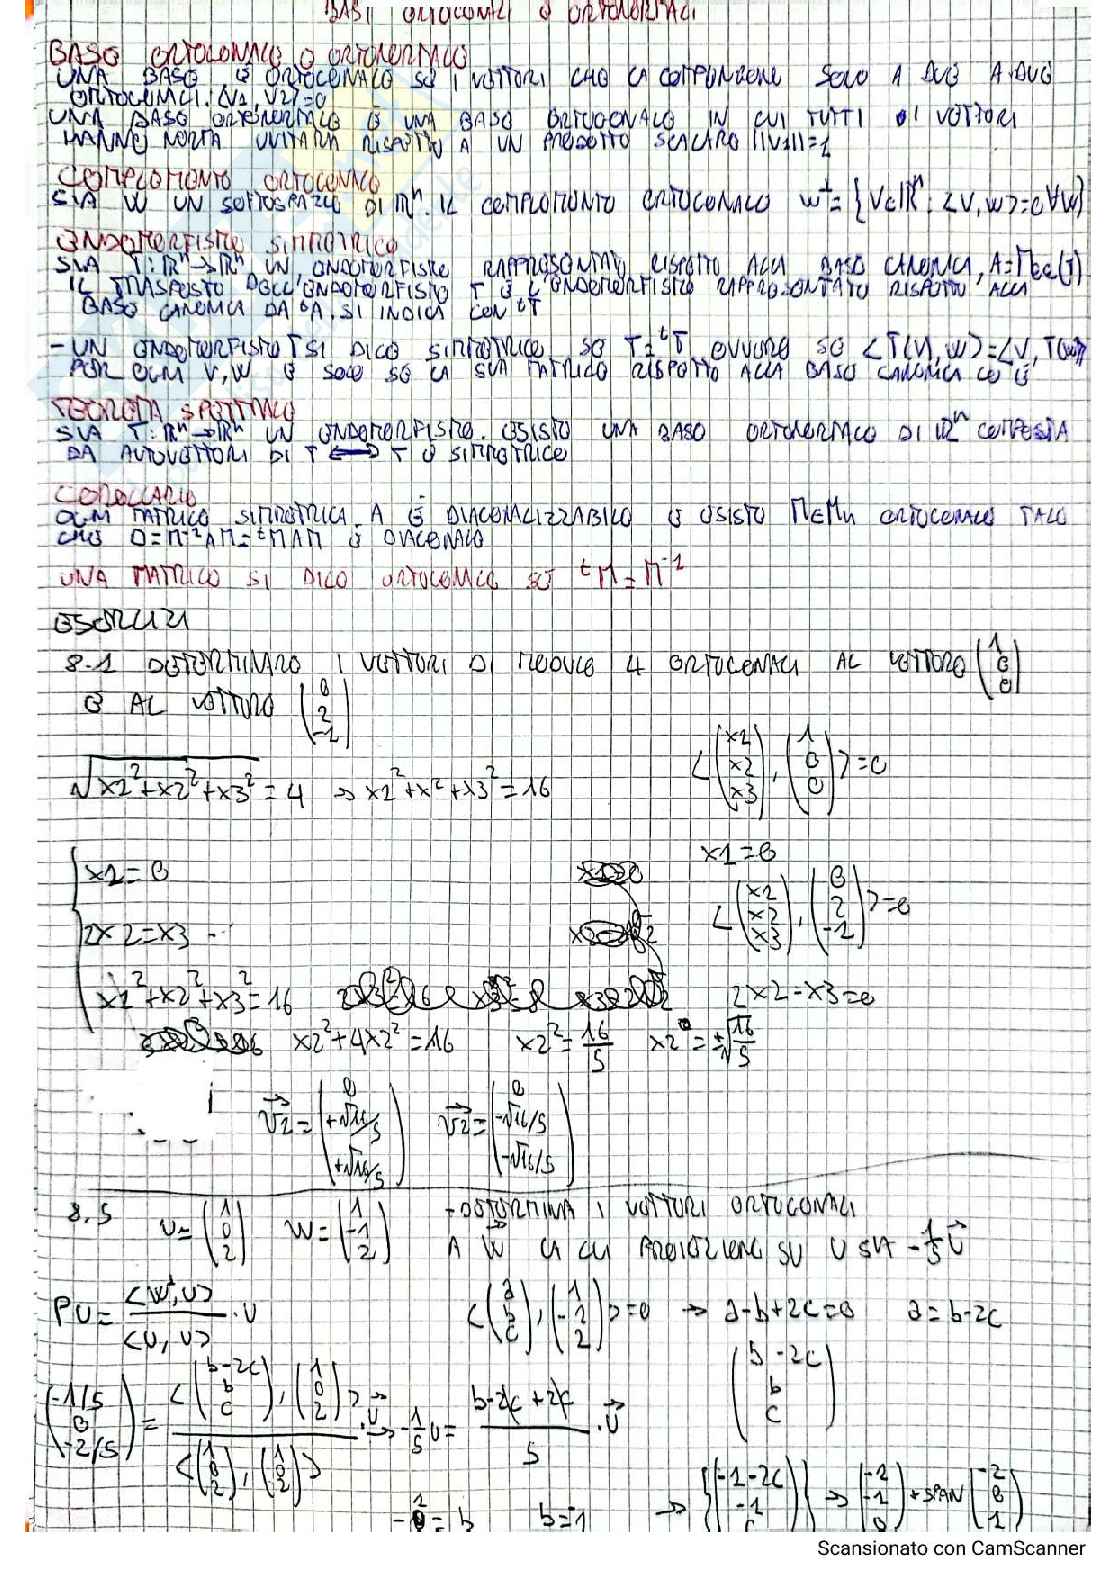 BASI ORTOGONALI O ORTONORMALI
BASE ORTOGONALE O ORTONORMALE
UNA BASE È ORTOGONALE SE I VETTORI CHE LA COMPONGONO SONO A DUE A DUE
ORTOGONALI. <V1, V2>=0
UNA BASE ORTONORMALE È UNA BASE ORTOGONALE IN CUI TUTTI I VETTORI
HANNO NORMA UNITARIA RISPETTO A UN PRODOTTO SCALARE ||V1||=1
COMPLEMENTO ORTOGONALE
SIA W UN SOTTOSPAZIO DI ℝⁿ. IL COMPLEMENTO ORTOGONALE W⊥={V∈ℝⁿ: <V,W>=0 ∀W}
ENDOMORFISMO SIMMETRICO
SIA T:ℝⁿ→ℝⁿ UN ENDOMORFISMO RAPPRESENTATO RISPETTO ALLA BASE CANONICA, A=Mee(T)
IL TRASPOSTO DELL'ENDOMORFISMO T È L'ENDOMORFISMO RAPPRESENTATO RISPETTO ALLA
BASE CANONICA DA ᵗA. SI INDICA CON ᵗT
- UN ENDOMORFISMO T SI DICE SIMMETRICO SE T=ᵗT OVVERO SE <T(V),W>=<V,T(W)>
PER OGNI V,W E SOLO SE LA SUA MATRICE RISPETTO ALLA BASE CANONICA LO È
TEOREMA SPETTRALE
SIA T:ℝⁿ→ℝⁿ UN ENDOMORFISMO. ESISTE UNA BASE ORTONORMALE DI ℝⁿ COMPOSTA
DA AUTOVETTORI DI T ⟺ T È SIMMETRICO
COROLLARIO
OGNI MATRICE SIMMETRICA A È DIAGONALIZZABILE E ESISTE M∈Mn ORTOGONALE TALE
CHE D=M⁻¹AM=ᵗMAM È DIAGONALE
UNA MATRICE SI DICE ORTOGONALE SE ᵗM=M⁻¹
ESERCIZI
8.1 DETERMINARE I VETTORI DI MODULO 4 ORTOGONALI AL VETTORE (1 0 0)
E AL VETTORE (0 2 -1)
√x1²+x2²+x3² = 4 ⇒ x1²+x²+x3²=16
<(x1 x2 x3), (1 0 0)>=0
x1=0
{ x1=0
2x2=x3
x1²+x2²+x3²=16
<(x1 x2 x3), (0 2 -1)>=0
2x2-x3=0
x2²+4x2²=16 x2²=16/5 x2=±√16/5
V1=(0 +√16/5 +√16/5) V2=(0 -√16/5 -√16/5)
8.5 U=(1 0 2) W=(1 -1 2) - DETERMINA I VETTORI ORTOGONALI
A W LA CUI PROIEZIONE SU U SIA -1/5 U
PU= <W⊥,U>/<U,U> ·U
<(a b c), (1 -1 2)>=0 → a-b+2c=0 a=b-2c
(b-2c b c)
(-1/5 0 -2/5) = <(b-2c b c), (1 0 2)>/<(1 0 2), (1 0 2)> ·U → -1/5 U = b-2c+2c/5 ·U
b=-1 → {(-1-2c -1 c)} ⇒ (-2 -1 0)+SPAN(-2 0 1)
Scansionato con CamScanner